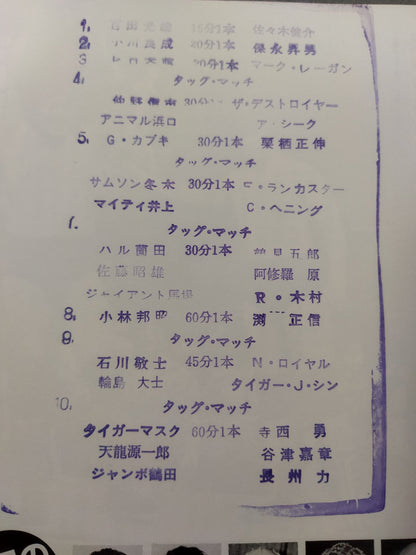 1. 15分1本 佐々木健介
2. 小川良成 20分1本 保永昇男
3 20分1本 マーク・レーガン
4. タッグ・マッチ
30分1本 ザ・デストロイヤー
アニマル浜口 ア・シーク
5. G・カブキ 30分1本 栗栖正伸
タッグ・マッチ
サムソン冬木 30分1本 F・ランカスター
マイティ井上 C・ヘニング
7. タッグ・マッチ
ハル薗田 30分1本 鶴見五郎
佐藤昭雄 阿修羅 原
ジャイアント馬場 R・木村
8. 小林邦昭 60分1本 渕 正信
9. タッグ・マッチ
石川敬士 45分1本 N・ロイヤル
輪島 大士 タイガー・J・シン
10. タッグ・マッチ
タイガーマスク 60分1本 寺西 勇
天龍源一郎 谷津嘉章
ジャンボ鶴田 長州 力